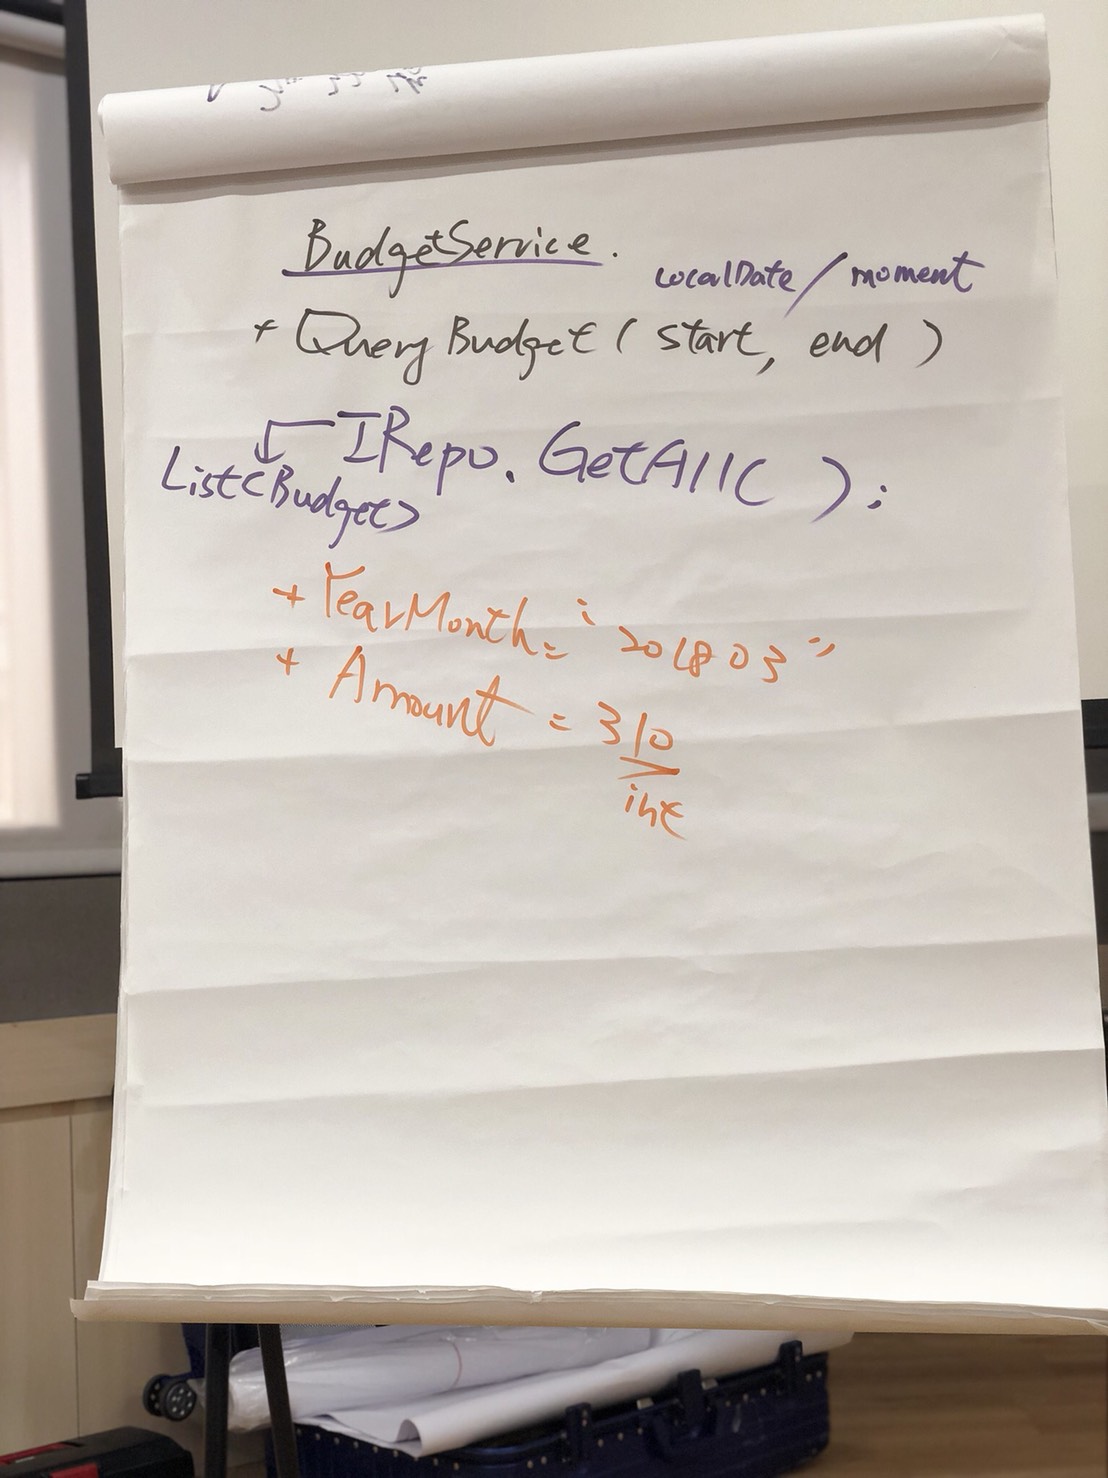 BudgetService.
LocalDate / moment
+ QueryBudget ( start, end )
IRepo. GetAll( );
List<Budget>
+ YearMonth = "201803"
+ Amount = 310
int